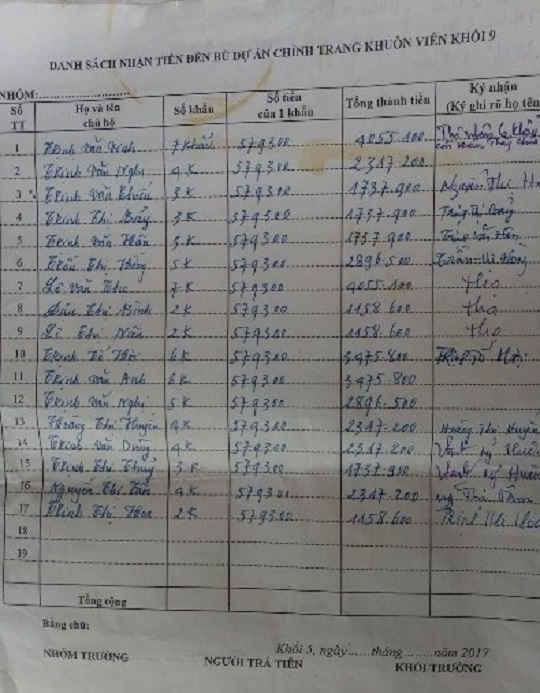 DANH SÁCH NHẬN TIỀN ĐỀN BÙ DỰ ÁN CHỈNH TRANG KHUÔN VIÊN KHỐI 9
NHÓM:
Số TT Họ và tên chủ hộ Số khẩu Số tiền của 1 khẩu Tổng thành tiền Ký nhận (Ký ghi rõ họ tên
1 Trịnh Văn 7 khẩu 579300 4055.100
2 Trịnh Văn Nghị 4K 579300 2317.200
3 Trịnh Văn 3K 579300 1737.900 Nguyễn Thị
4 Trịnh Thị 3K 579300 1737.900
5 Trịnh Văn 3K 579300 1737.900
6 Trần Thị Hồng 5K 579300 2896.500 Trần Thị Hồng
7 Lê Văn Thọ 7K 579300 4055.100 thọ
8 Thị Bình 2K 579300 1158.600 thọ
9 Lê Thị 2K 579300 1158.600 thọ
10 Trịnh 6K 579300 3475.800
11 Trịnh Văn Anh 6K 579300 3475.800
12 Trịnh Văn Nghị 5K 579300 2896.500
13 Hoàng Thị Huyền 4K 579300 2317.200 Hoàng Thị Huyền
14 Trịnh Văn Dũng 4K 579300 2317.200
15 Trịnh Thị Thuỷ 3K 579300 1737.900
16 Nguyễn Thị 4K 579300 2317.200
17 Trịnh Thị 2K 579300 1158.600 Trịnh Thị
18
19
Tổng cộng
Bằng chữ:
Khối 5, ngày......tháng.........năm 2017
NHÓM TRƯỞNG NGƯỜI TRẢ TIỀN KHỐI TRƯỞNG